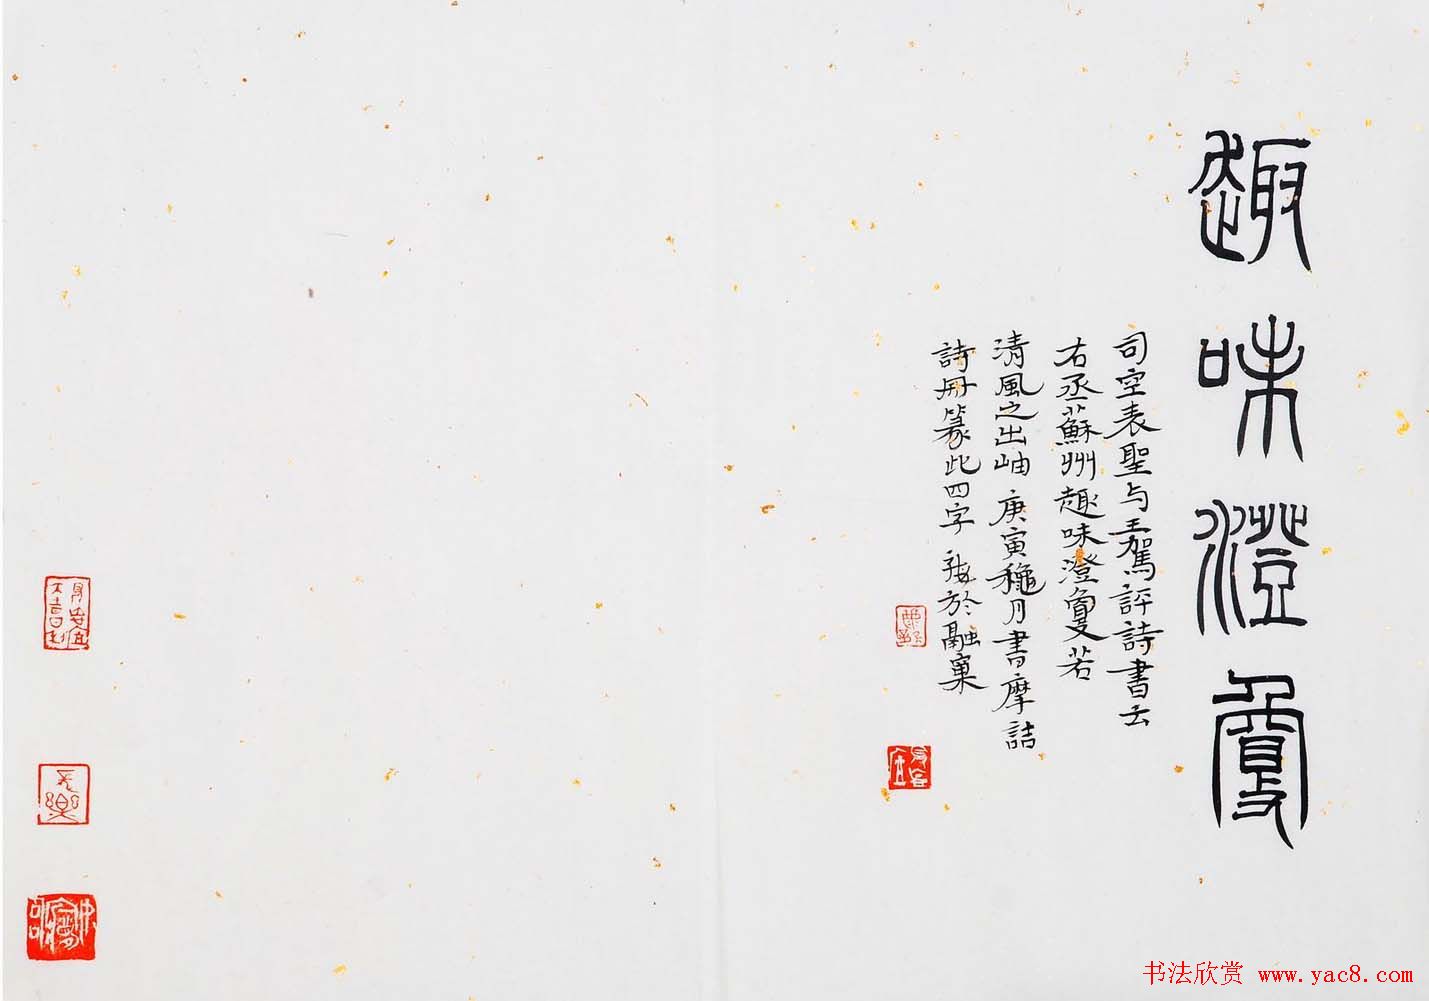 趣味澄夐
司空表聖与王駕評詩書云
右丞蘇州趣味澄夐若
清風之出岫 庚寅龝月書摩詰
詩冊篆此四字 於融窠
長樂
书法欣赏 www.yac8.com